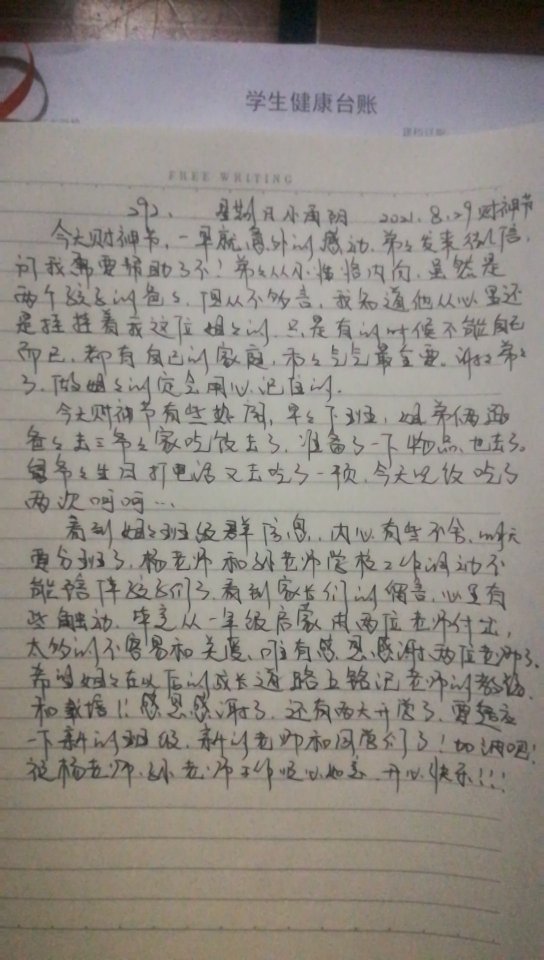 学生健康台账
FREE WRITING
292. 星期日 小雨阴 2021.8.29 财神节
今天财神节,一早就意外的感动.弟弟发来微信,
问我需要帮助了不!弟弟从小性格内向,虽然是
两个孩子的爸爸,但从不多言,我知道他从心里还
是挂挂着我这位姐姐的,只是有的时候不能自己
而已,都有自己的家庭,和和气气最重要.谢谢弟弟
了.做姐姐的定会用心记住的.
今天财神节有些热闹,早早下班,姐弟俩跟
爸爸去三爷爷家吃饭去了.准备了一下物品,也去了.
生日打电话又去吃了一顿,今天光饭吃了
两次呵呵…
看到姐姐班级群信息,内心有些不舍,明天
要分班了,杨老师和孙老师学校工作调动不
能陪伴孩子们了,看到家长们的留言,心里有
些触动,毕竟从一年级启蒙两位老师付出,
太多的不容易和关爱,唯有感恩感谢两位老师了.
希望姐姐在以后的成长道路上铭记老师的教诲
和栽培!!感恩感谢了,还有两天开学了,要适应
一下新的班级,新的老师和同学们了!加油吧!
祝杨老师.孙老师工作顺心如意,开心快乐!!!